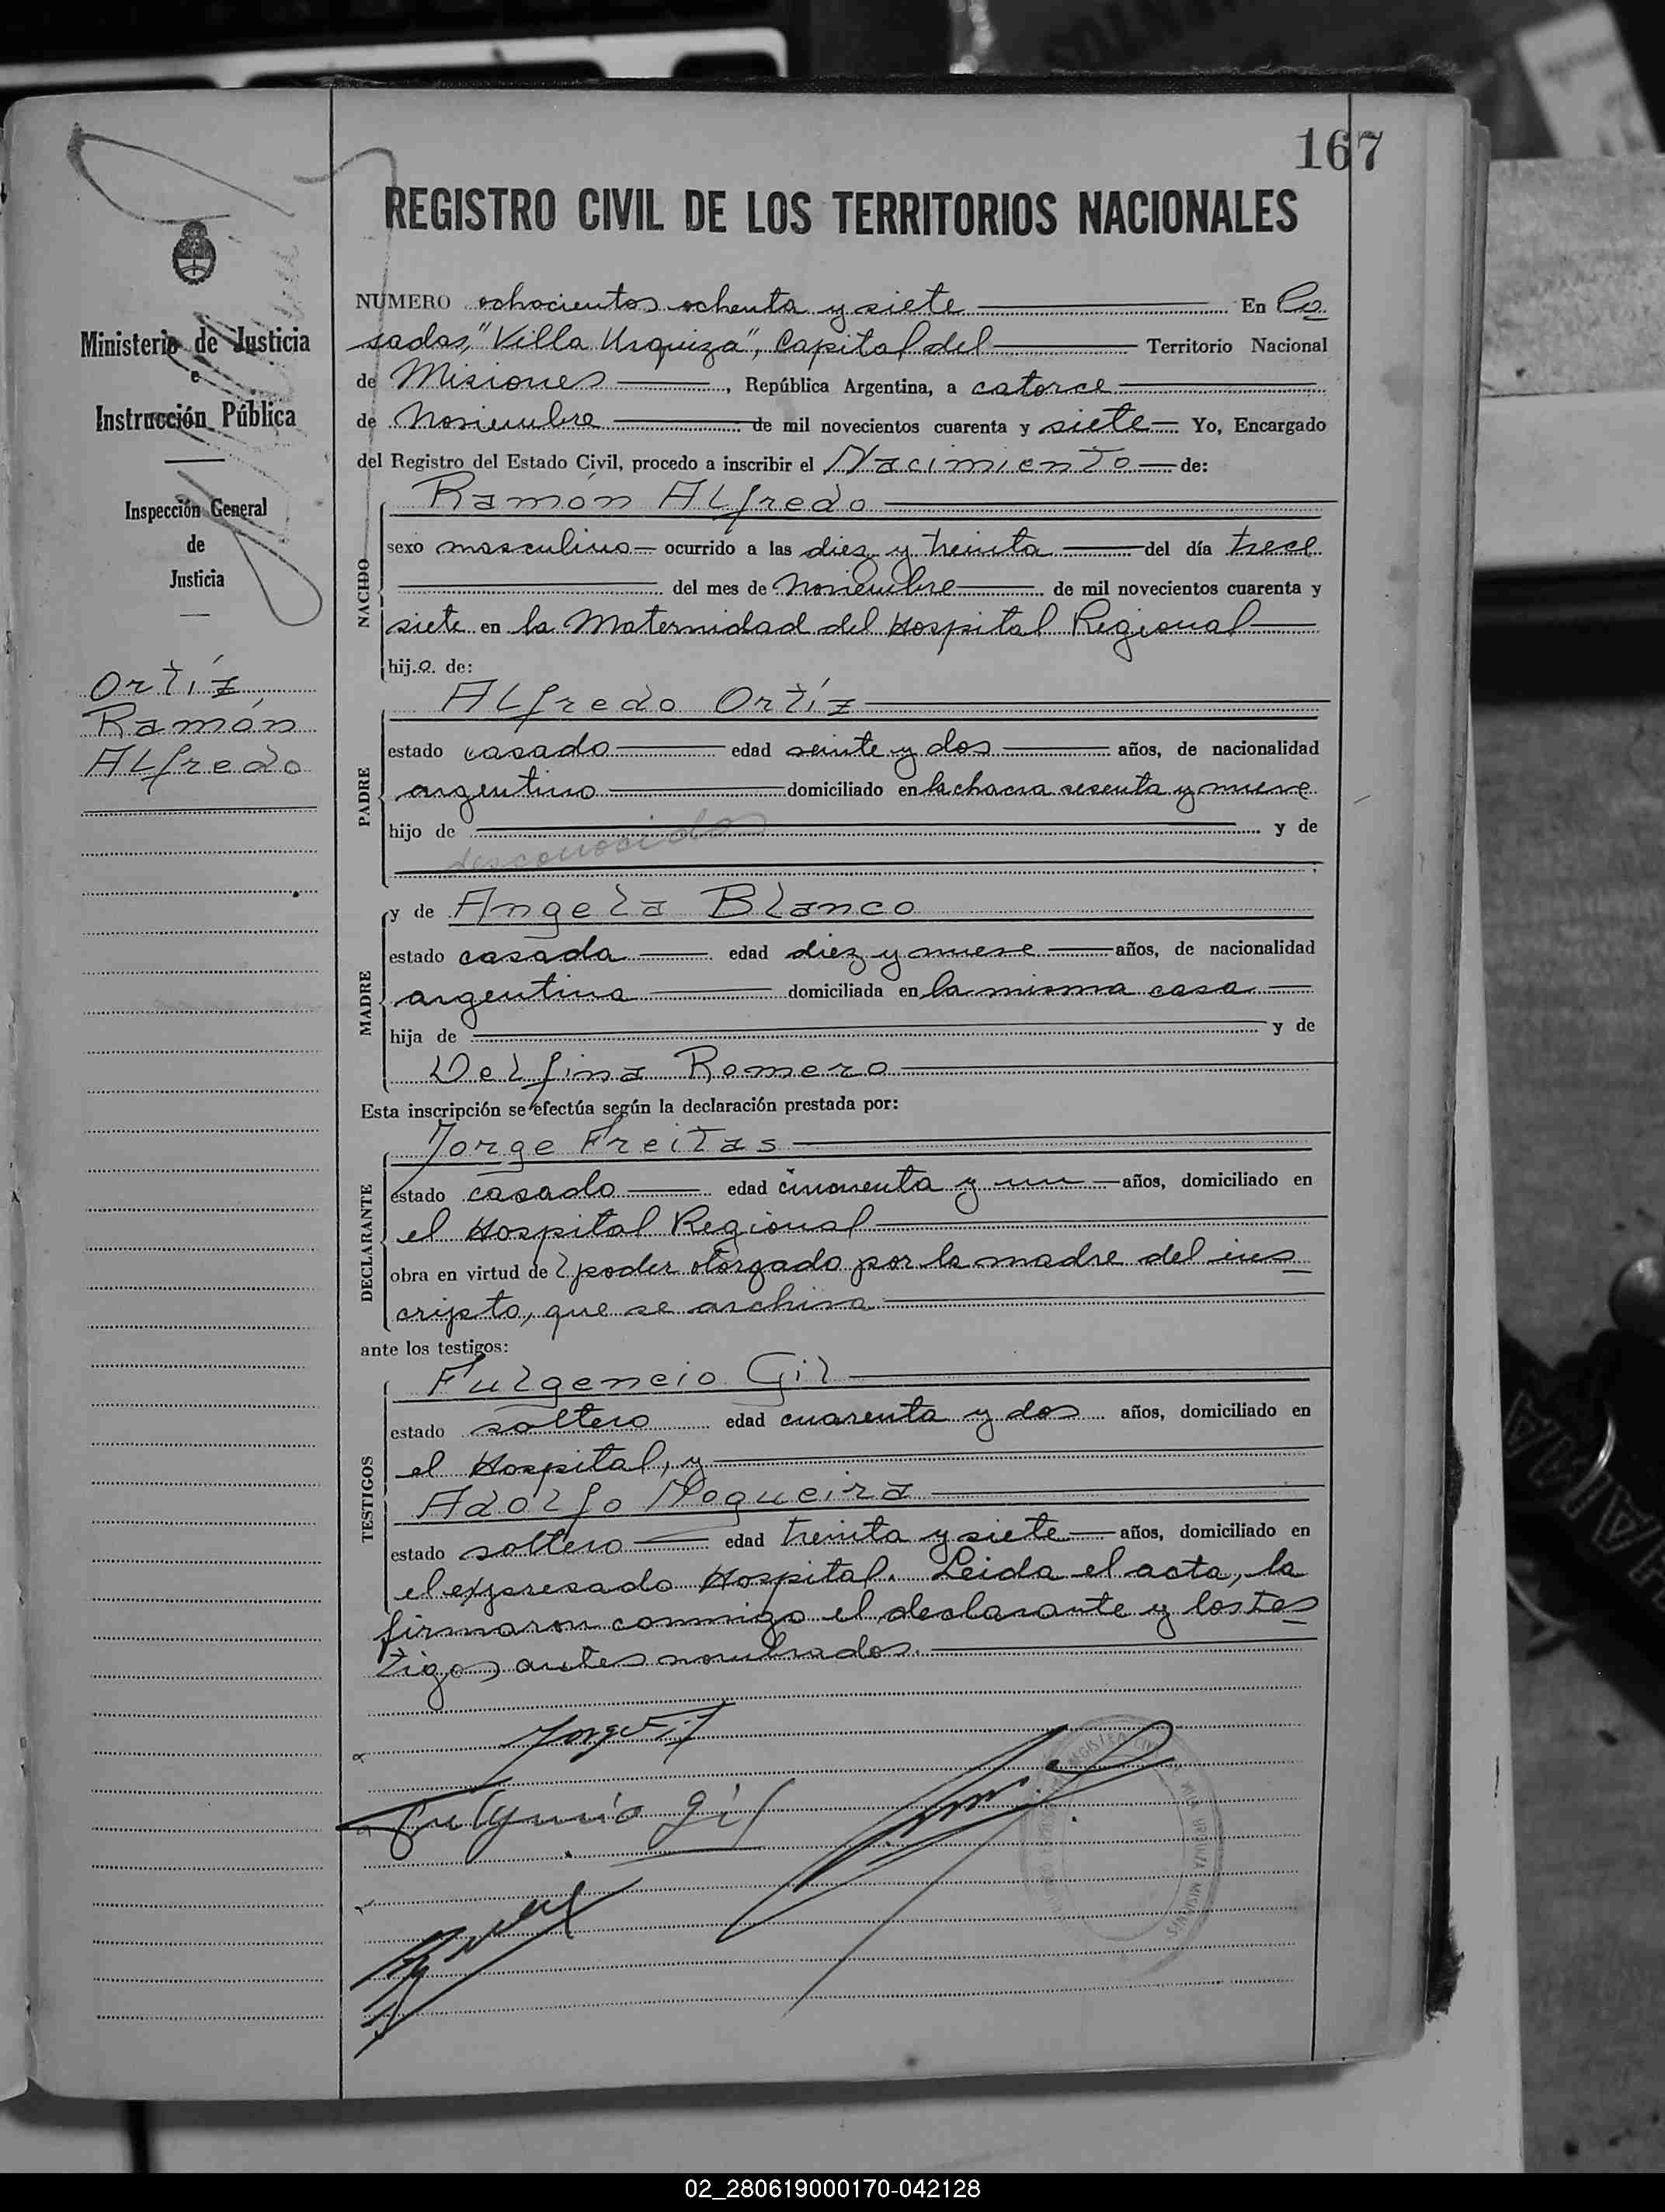 167
REGISTRO CIVIL DE LOS TERRITORIOS NACIONALES
Ministerio de Justicia
e
Instrucción Pública
Inspección General
de
Justicia
Ortíz
Ramón
Alfredo
NUMERO ochocientos ochenta y siete En Po
sadas, "Villa Urquiza", Capital del Territorio Nacional
de Misiones, República Argentina, a catorce
de Noviembre de mil novecientos cuarenta y siete Yo, Encargado
del Registro del Estado Civil, procedo a inscribir el Nacimiento de:
NACIDO
Ramón Alfredo
sexo masculino ocurrido a las diez y treinta del día trece
del mes de Noviembre de mil novecientos cuarenta y
siete en la Maternidad del Hospital Regional
hijo de:
PADRE
Alfredo Ortíz
estado casado edad veinte y dos años, de nacionalidad
argentino domiciliado en la chacra sesenta y nueve
hijo de y de
desconocidos
MADRE
y de Angela Blanco
estado casada edad diez y nueve años, de nacionalidad
argentina domiciliada en la misma casa
hija de y de
Delfina Romero
Esta inscripción se efectúa según la declaración prestada por:
DECLARANTE
Jorge Freitas
estado casado edad cincuenta y un años, domiciliado en
el Hospital Regional
obra en virtud del poder otorgado por la madre del ins
cripto, que se archiva
ante los testigos:
TESTIGOS
Fulgencio Gil
estado soltero edad cuarenta y dos años, domiciliado en
el Hospital, y
Adolfo Nogueira
estado soltero edad treinta y siete años, domiciliado en
el expresado Hospital. Leida el acta, la
firmaron conmigo el declarante y los tes
tigos antes nombrados.
Fulgencio Gil
REGISTRO CIVIL
VILLA URQUIZA MISIONES
02_280619000170-042128